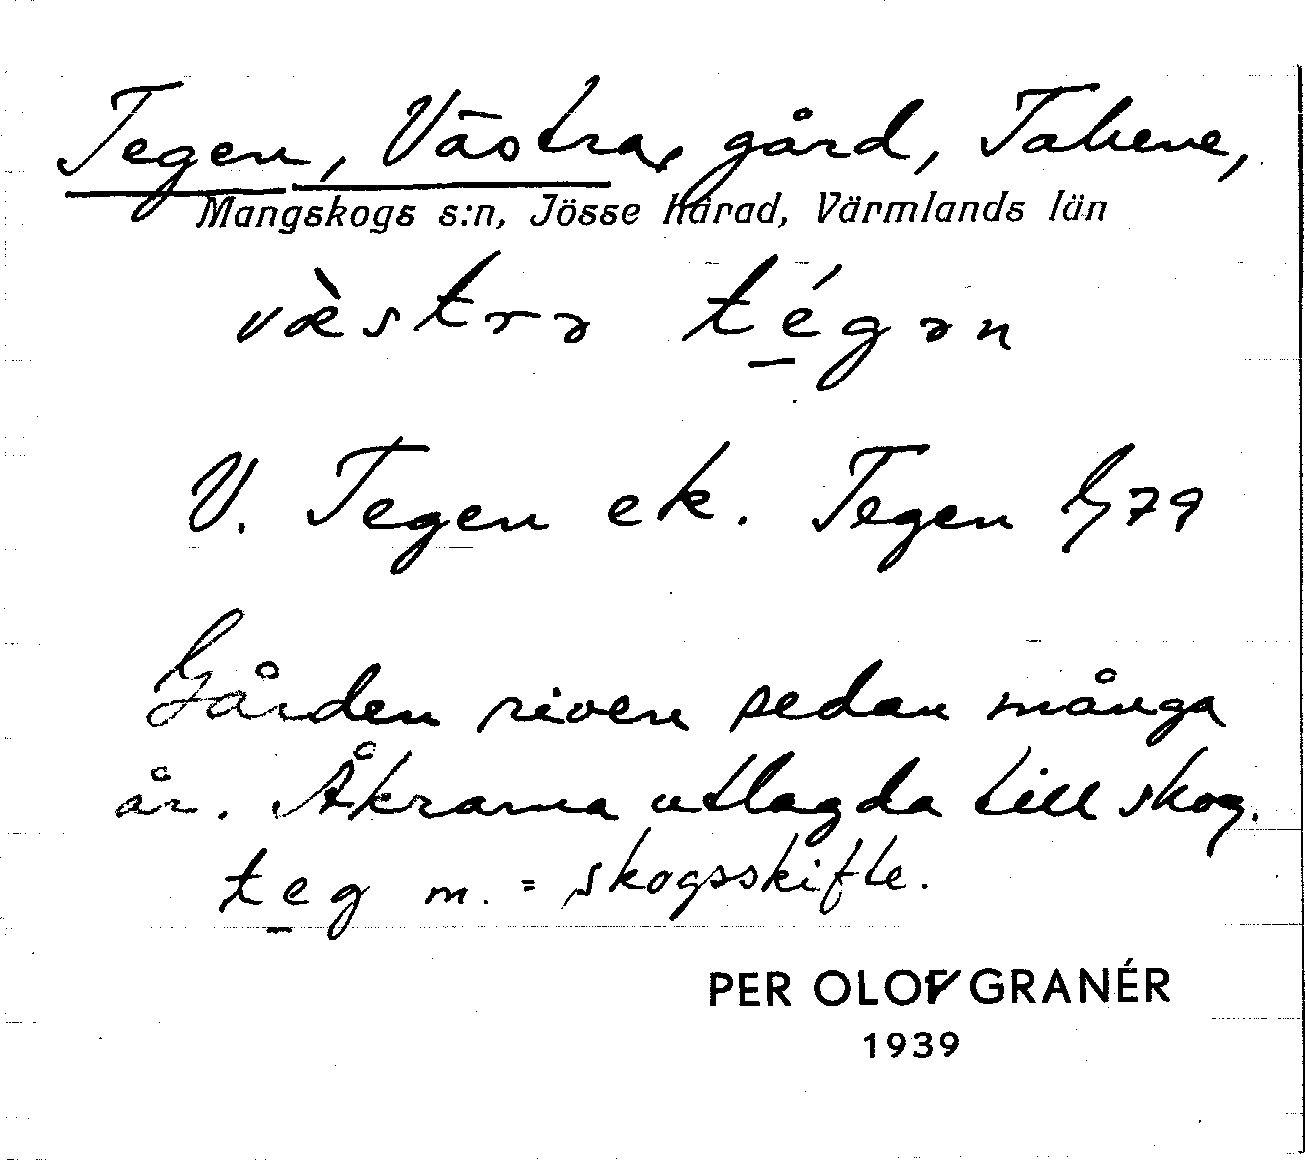 Tegen, Västra, gård, Takene,
Mangskogs s:n, Jösse härad, Värmlands län
væ̀strə té̠gən
V. Tegen ek. Tegen G79
Gården riven sedan många
år. Åkrarna utlagda till skog.
te̠g m. = skogsskifte.
PER OLOV GRANÉR
1939